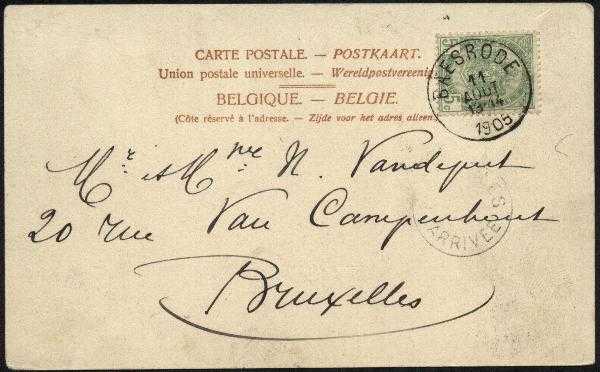 CARTE POSTALE. — POSTKAART.
Union postale universelle. — Wereldpostvereenig
BELGIQUE. — BELGIE.
(Côte réservé à l'adresse. — Zijde voor het adres alleen.
ESRODE
11
AOUT
1905
Mr et Mme N. Vandeput
20 rue Van Campenhout
ARRIVEE
Bruxelles